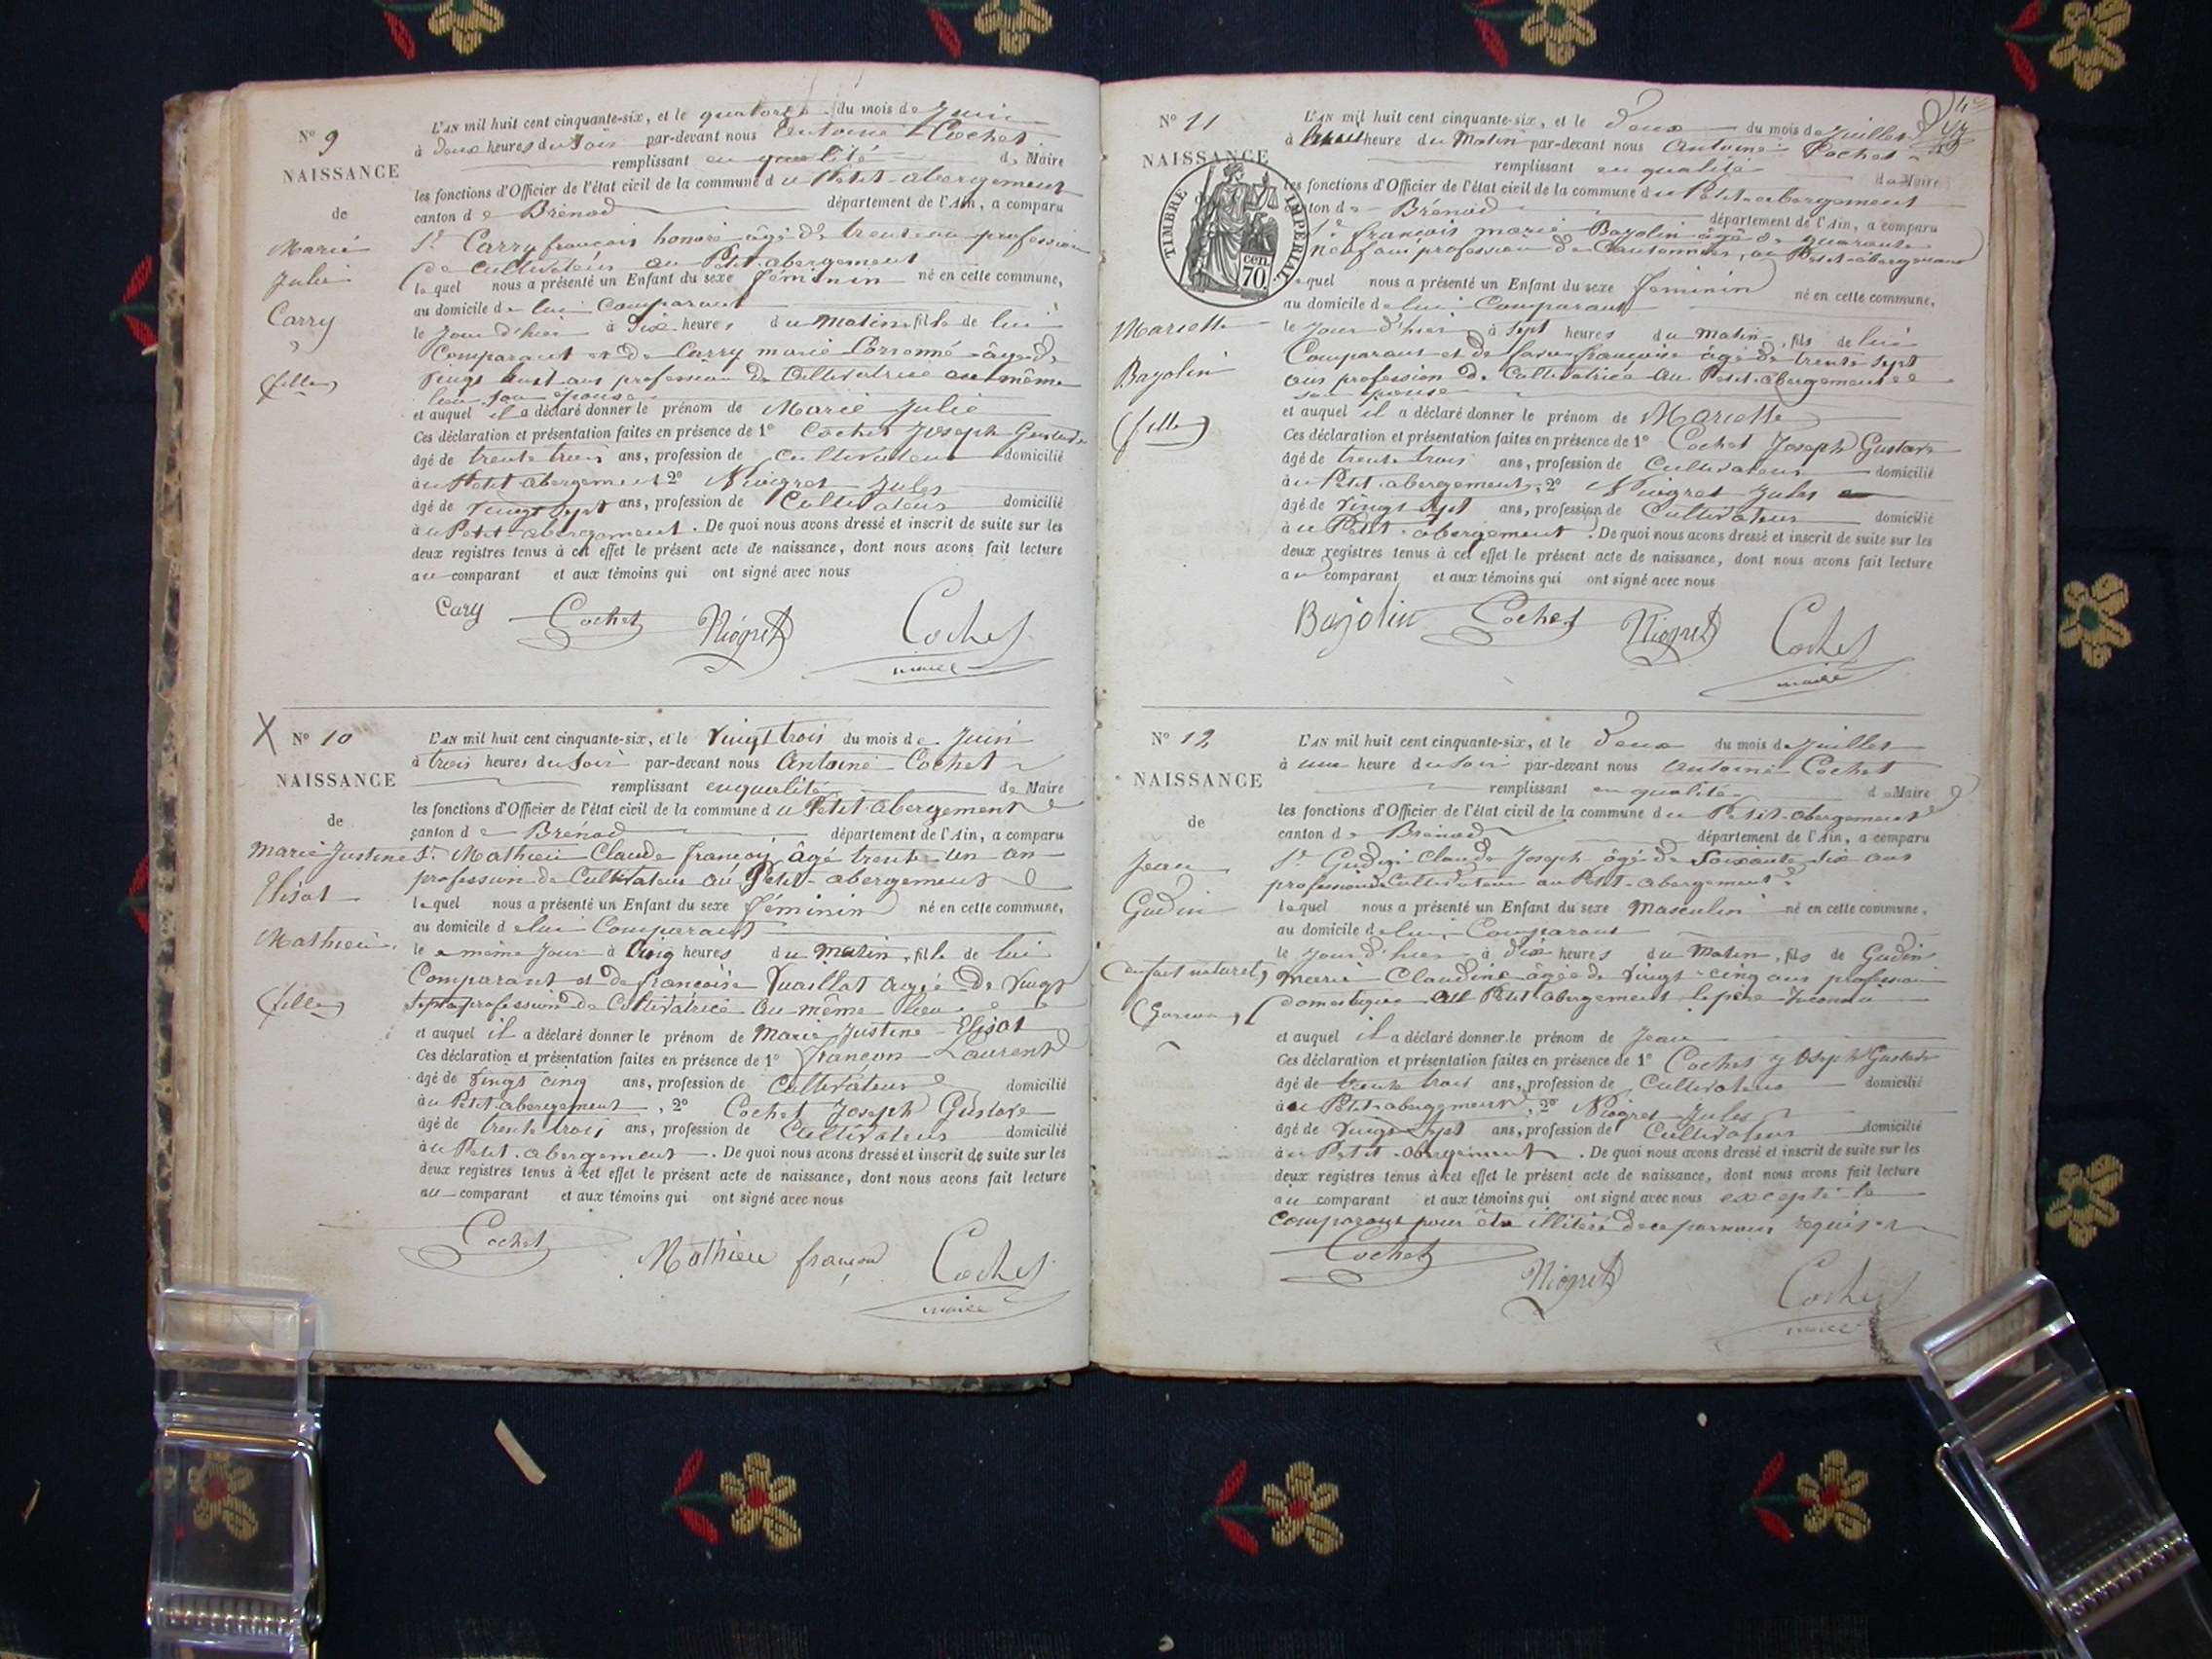 N° 9
NAISSANCE
de
Marie
Julie
Carry
(fille)
L'AN mil huit cent cinquante-six, et le quatorze du mois de Juin
à deux heures du Soir par-devant nous Antoine Cochet
remplissant en qualité de Maire
les fonctions d'Officier de l'état civil de la commune du Petit-abergement
canton de Brénod département de l'Ain, a comparu
Sr. Carry françois honoré âgé de trente profession
de Cultivateur au Petit-abergement
lequel nous a présenté un Enfant du sexe féminin né en cette commune,
au domicile de lui Comparant
le Jour d'hier à Six heures du matin, fille de lui
Comparant et de Carry marie âgée de
vingt huit ans profession de Cultivatrice au même
lieu son épouse
et auquel il a déclaré donner le prénom de Marie Julie
Ces déclaration et présentation faites en présence de 1° Cochet Joseph Gustave
âgé de trente trois ans, profession de Cultivateur domicilié
au Petit abergement 2° Niogret Jules
âgé de vingt sept ans, profession de Cultivateur domicilié
au Petit-abergement. De quoi nous avons dressé et inscrit de suite sur les
deux registres tenus à cet effet le présent acte de naissance, dont nous avons fait lecture
au comparant et aux témoins qui ont signé avec nous
Cary Cochet Niogret Cochet
maire
N° 10
NAISSANCE
de
Marie Justine
Elisat
Mathieu
(fille)
L'AN mil huit cent cinquante-six, et le vingt trois du mois de Juin
à trois heures du Soir par-devant nous Antoine Cochet
remplissant en qualité de Maire
les fonctions d'Officier de l'état civil de la commune du Petit-abergement
canton de Brénod département de l'Ain, a comparu
Sr. Mathieu Claude françois âgé trente un an
profession de Cultivateur au Petit-abergement
lequel nous a présenté un Enfant du sexe féminin né en cette commune,
au domicile de lui Comparant
le même Jour à Cinq heures du matin, fille de lui
Comparant et de françoise Vuaillat agée de vingt
sept profession de Cultivatrice au même lieu
et auquel il a déclaré donner le prénom de Marie Justine Elisat
Ces déclaration et présentation faites en présence de 1° françon Laurent
âgé de vingt cinq ans, profession de Cultivateur domicilié
au Petit-abergement, 2° Cochet Joseph Gustave
âgé de trente trois ans, profession de Cultivateur domicilié
au Petit-abergement. De quoi nous avons dressé et inscrit de suite sur les
deux registres tenus à cet effet le présent acte de naissance, dont nous avons fait lecture
au comparant et aux témoins qui ont signé avec nous
Cochet Mathieu françon Cochet
maire
N° 11
NAISSANCE
TIMBRE IMPÉRIAL
70 cen.
Mariette
Bajolin
(fille)
L'AN mil huit cent cinquante-six, et le deux du mois de Juillet
à heure du Matin par-devant nous Antoine Cochet
remplissant en qualité de Maire
les fonctions d'Officier de l'état civil de la commune du Petit-abergement
canton de Brénod département de l'Ain, a comparu
Sr. françois marie Bajolin âgé de quarante
neuf ans profession de Cantonnier, au Petit-abergement
lequel nous a présenté un Enfant du sexe féminin né en cette commune,
au domicile de lui Comparant
le Jour d'hier à Sept heures du matin, fils de lui
Comparant et de françoise âgé de trente sept
ans profession de Cultivatrice au Petit-abergement
son épouse
et auquel il a déclaré donner le prénom de Mariette
Ces déclaration et présentation faites en présence de 1° Cochet Joseph Gustave
âgé de trente trois ans, profession de Cultivateur domicilié
au Petit-abergement, 2° Niogret Jules
âgé de vingt sept ans, profession de Cultivateur domicilié
au Petit-abergement. De quoi nous avons dressé et inscrit de suite sur les
deux registres tenus à cet effet le présent acte de naissance, dont nous avons fait lecture
au comparant et aux témoins qui ont signé avec nous
Bajolin Cochet Niogret Cochet
maire
N° 12
NAISSANCE
de
Jean
Gudin
(enfant naturel)
(Garçon)
L'AN mil huit cent cinquante-six, et le deux du mois de Juillet
à une heure du Soir par-devant nous Antoine Cochet
remplissant en qualité de Maire
les fonctions d'Officier de l'état civil de la commune du Petit-abergement
canton de Brénod département de l'Ain, a comparu
Sr. Gudin Claude Joseph âgé de Soixante Six ans
profession de Cultivateur au Petit-abergement
lequel nous a présenté un Enfant du sexe Masculin né en cette commune,
au domicile de lui Comparant
le Jour d'hier à dix heures du Matin, fils de Gudin
marie Claudine âgée de vingt-cinq ans profession
domestique au Petit abergement le père Inconnu
et auquel il a déclaré donner le prénom de Jean
Ces déclaration et présentation faites en présence de 1° Cochet Joseph Gustave
âgé de trente trois ans, profession de Cultivateur domicilié
au Petit-abergement, 2° Niogret Jules
âgé de vingt sept ans, profession de Cultivateur domicilié
au Petit-abergement. De quoi nous avons dressé et inscrit de suite sur les
deux registres tenus à cet effet le présent acte de naissance, dont nous avons fait lecture
au comparant et aux témoins qui ont signé avec nous excepté le
comparant pour être illitéré de ce par nous requis
Cochet Niogret Cochet
maire